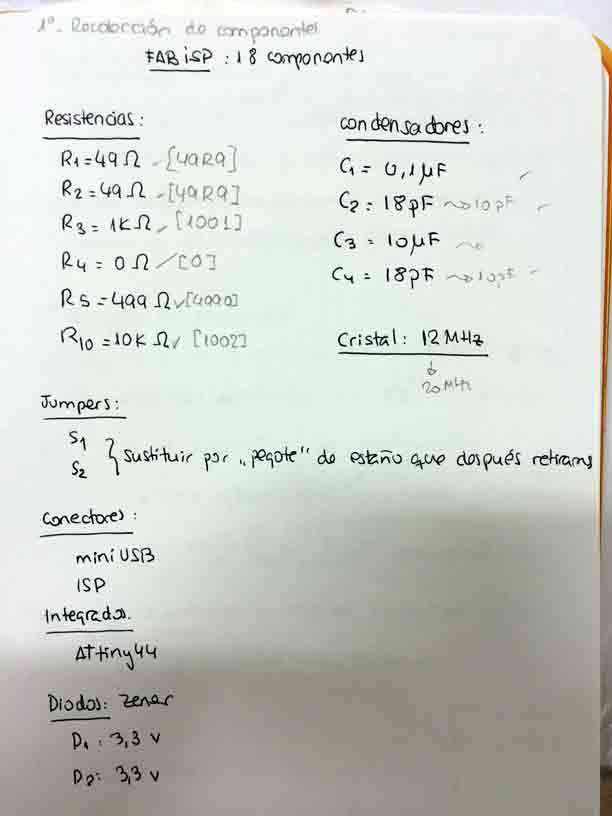 1º. Recolección de componentes
FABiSP : 18 componentes
Resistencias :
R1 = 49 Ω - [49R9]
R2 = 49 Ω - [49R9]
R3 = 1K Ω - [1001]
R4 = 0 Ω / [0]
R5 = 499 Ω ✓ [4990]
R10 = 10K Ω ✓ [1002]
condensadores :
C1 = 0,1 µF
C2 = 18 pF ~> 10 pF
C3 = 10 µF
C4 = 18 pF ~> 10 pF
Cristal : 12 MHz
↓
20 MHz
Jumpers :
S1
S2 } Sustituir por "pegote" de estaño que después retiramos
Conectores :
mini USB
ISP
Integrados.
ATtiny44
Diodos: Zener
D1 : 3,3 v
D2: 3,3 v